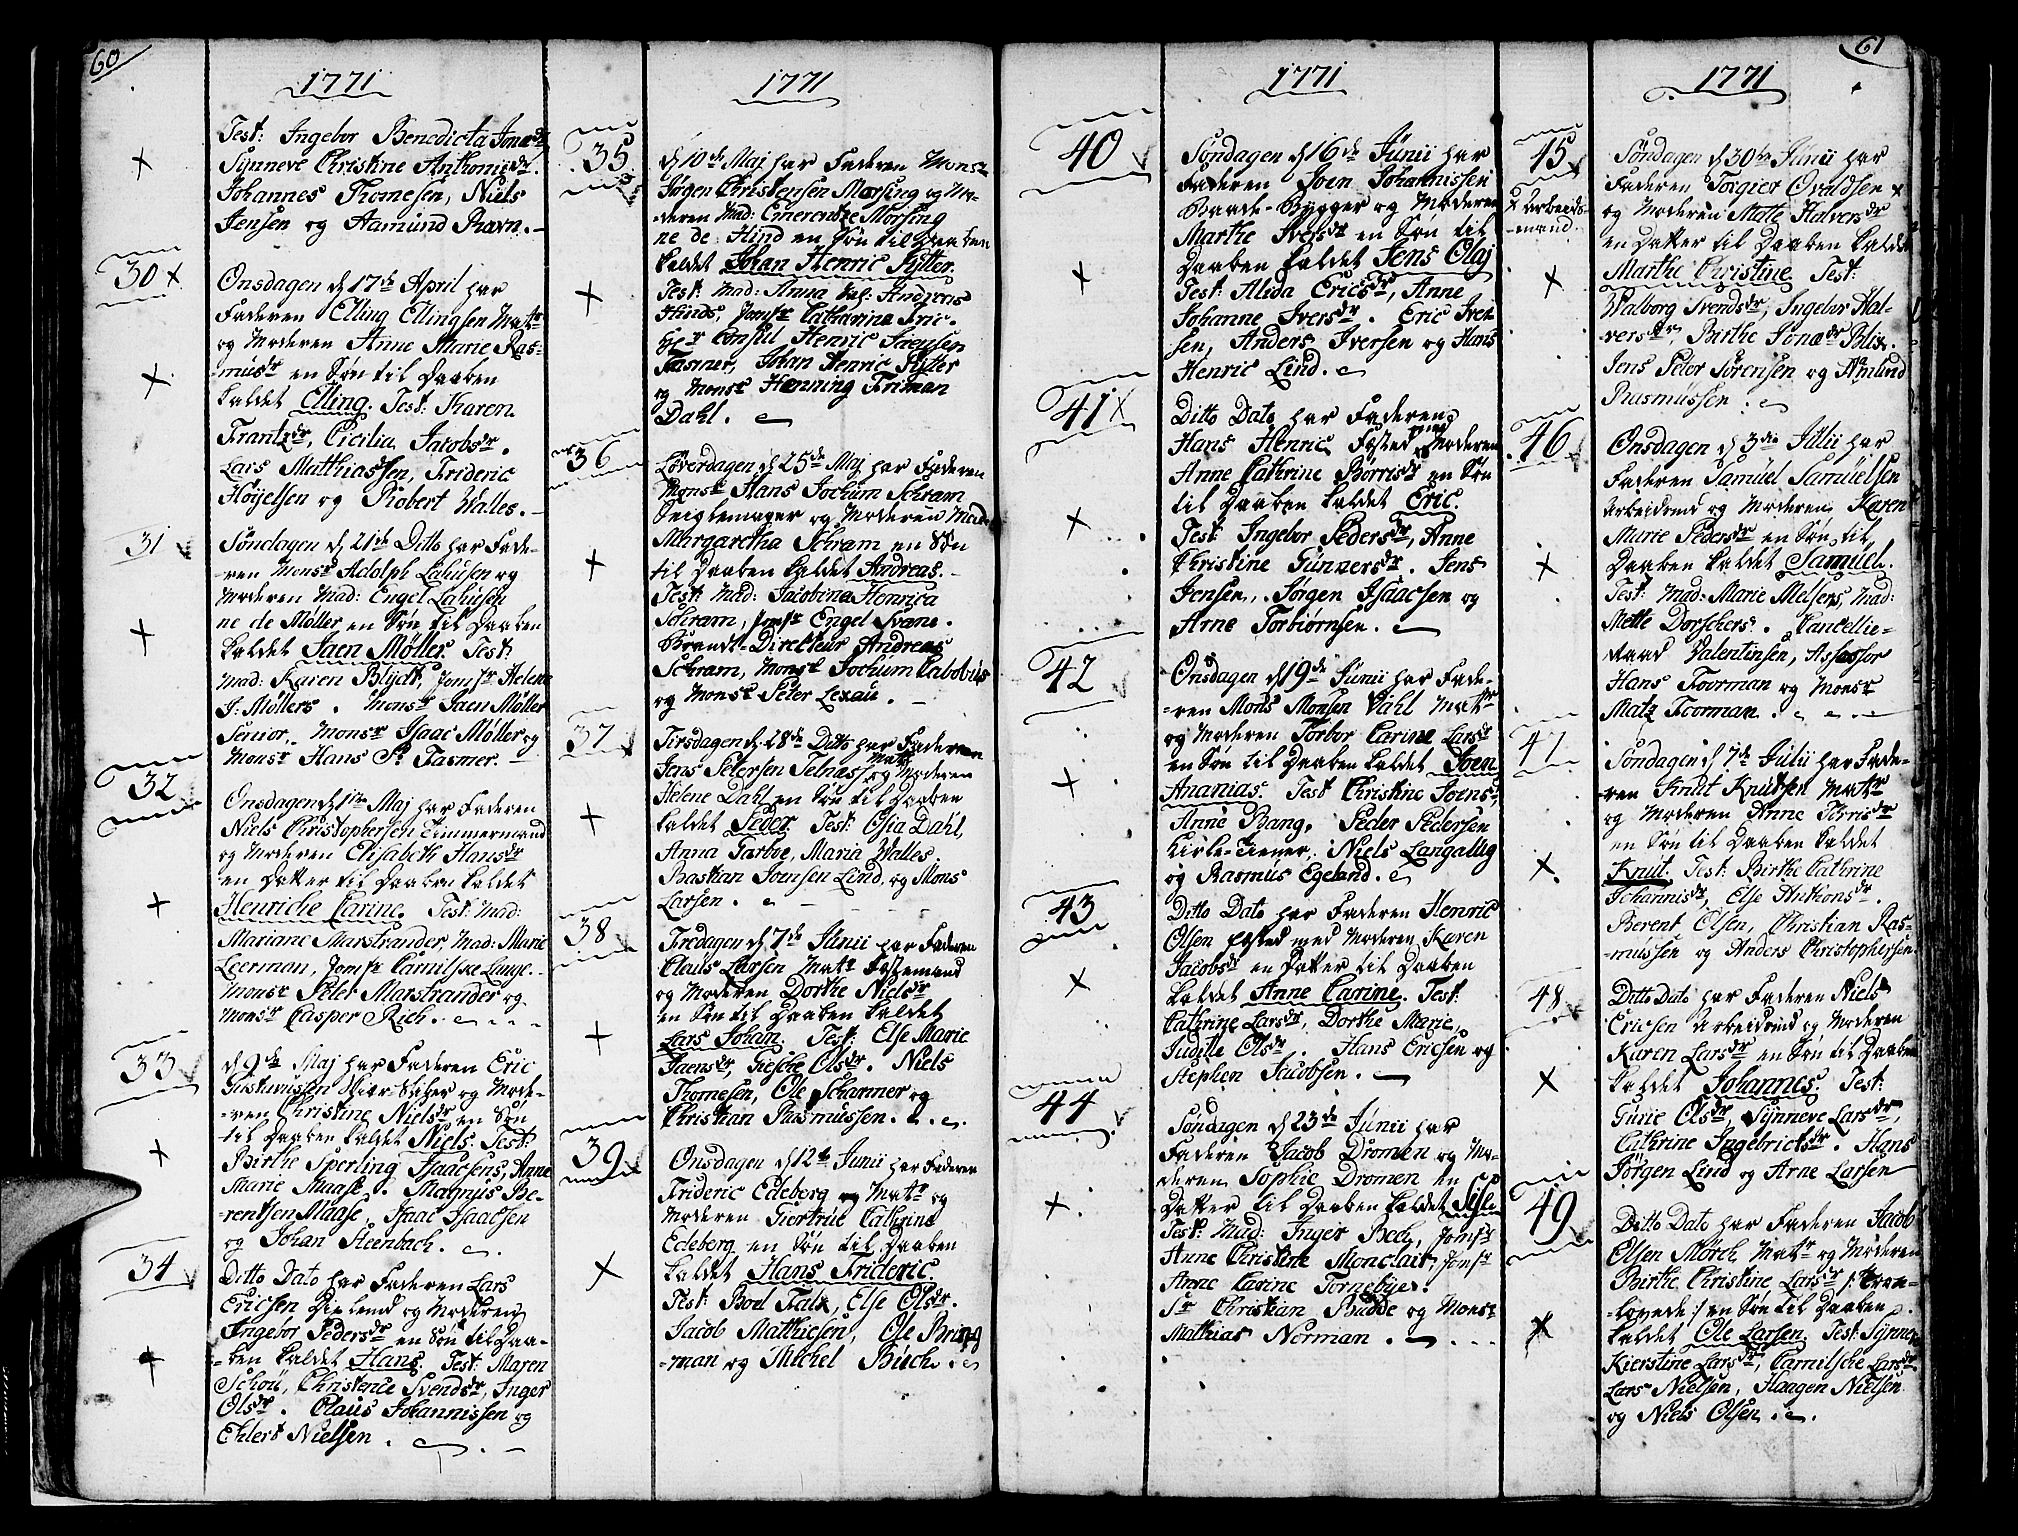 60
1771
Test: Ingebor Benedicta Jonædr
Synneve Christine Anthonisdr.
Johannes Thomesen, Niels
Jensen og Aamund Ravn.
30
Onsdagen d 17de April har
Faderen Elling Ellingsen Matr
og Moderen Anne Marie Ras-
-musdr en Søn til Daaben
kaldet Elling. Test: Karen
Frantzdr, Cicilia Jacobsdr.
Lars Matthiassen, Frideric
Høyelsen og Robert Walles.
31
Søndagen d 21de Ditto har Fade-
-ren Monsr Adolph Lahusen og
Moderen Mad: Engel Lahusen
ne de Møller en Søn til Daaben
kaldet Jaen Møller. Test:
Mad: Karen Blydt, Jomfr Helene
J: Møllers. Monsr Jaen Møller
Senior, Monsr Isaac Møller og
Monsr Hans Pr Fasmer.
32
Onsdagen d 1ste Maj har Faderen
Niels Christophersen Timmermand
og Moderen Elisabeth Hansdr
en Datter til Daaben kaldet
Henriche Carine. Test: Mad:
Mariane Marstrander, Mad: Marie
Leerman, Jomfr Carnilske Lange.
Monsr Peter Marstrander og
Monsr Casper Rich.
33
d 9de Maj har Faderen Eric
og Mode-
-ren Christine Nielsdr en Søn
til Daaben kaldet Niels. Test:
Birthe Sperling Isaacsens, Anne
Marie Maase. Magnus Be-
-rentsen Maase, Isaac Isaacsen
og Johan Steenbach.
34
Ditto Dato har Faderen Lars
Ericsen og Moderen
Ingebor Pedersdr en Søn til Daa-
-ben kaldet Hans. Test: Maren
Schou, Christence Svendsdr, Inger
Olsdr. Claus Johannissen og
Ehlert Nielsen.
1771
35
d 10de Maj har Faderen Monsr
Jørgen Christensen Morsing og Mo-
-deren Mad: Emerentze Morsing
ne de Hind en Søn til Daaben
kaldet Johan Henric Pytter.
Test: Mad: Anna Andreas
Hinds, Jomfr Catharina Fric.
Hr Consul Henric Joensen
Fasmer, Johan Henric Pytter
og Monsr Henning Friman
Dahl.
36
Løverdagen d 25de Maj har Faderen
Monsr Hans Jochum Schram
Seiglemager og Moderen Mad:
Margaretha Schram en Søn
til Daaben kaldet Andreas.
Test: Mad: Jacobina Henrica
Schram, Jomfr Engel Svane.
Brandt-Directeur Andreas
Schram, Monsr Jochum Cabobus
og Monsr Peter Lexau.
37
Tirsdagen d 28de Ditto har Faderen
Jens Petersen Telnæs Matr og Moderen
Helene Dahl en Søn til Daaben
kaldet Peder. Test: Osia Dahl,
Anna Garboe, Maria Walles.
Bastian Joensen Lind, og Mons
Larsen.
38
Fredagen d 7de Junii har Faderen
Claus Larsen Matr
og Moderen Dorthe Nielsdr
en Søn til Daaben kaldet
Lars Johan. Test: Else Marie
Jaensdr, Giesche Olsdr. Niels
Thomesen, Ole Scharmer og
Christian Rasmussen.
39
Onsdagen d 12te Junii har Faderen
Frideric Edeberg Matr og
Moderen Giertrue Cathrine
Edeberg en Søn til Daaben
kaldet Hans Frideric.
Test: Boel Falx, Else Olsdr.
Jacob Matthiesen, Ole Bring
-man og Michel Busch.
1771
40
Søndagen d 16de Junii har
Faderen Joen Johannissen
Baade-Bygger og Moderen
Marthe Iversdr en Søn til
Daaben kaldet Jens Olaj
Test: Alida Ericsdr, Anne
Johanne Iversdr. Eric Iver
sen, Anders Iversen og Hans
Henric Lind.
41
Ditto Dato har Faderen
Hans Henric Fæsted med Moderen
Anne Cathrine Børrisdr en Søn
til Daaben kaldet Eric.
Test: Ingebor Pedersdr, Anne
Christine Gunnersdr. Jens
Jensen, Jørgen Isaacsen og
Arne Torbiørnsen.
42
Onsdagen d 19de Junii har Fade-
-ren Mons Monsen Dahl Matr
og Moderen Torbor Carine Larsdr
en Søn til Daaben kaldet Joen
Ananias. Test Christine Joens,
Anne Bang. Peder Pedersen
Kirke-Tiener, Niels Langallig
og Rasmus Egeland.
43
Ditto Dato har Faderen Henric
Olsen fæsted med Moderen Karen
Jacobsdr en Datter til Daaben
kaldet Anne Carine. Test:
Cathrine Larsdr, Dorthe Marie,
Judithe Olsdr. Hans Ericsen og
Stephen Jacobsen.
44
Søndagen d 23de Junii har
Faderen Jacob Dromen og Mo-
deren Sophie Dromen en
Datter til Daaben kaldet Sisle
Test: Mad: Inger Bech, Jomfr
Anne Christine Monclair, Jomfr
Anne Carine Tornebye.
Sr Christian Budde og Monsr
Mathias Norman.
61
1771
45
x Arbeids-
-mand.
Søndagen d 30te Junii har
Faderen Torgier Ovaldsen x
og Moderen Mette Halversdr
en Datter til Daaben kaldet
Marthe Christine. Test:
Walborg Svendsdr, Ingebor Hal-
versdr, Birthe Jonædr Blix.
Jens Peter Sørensen og Amund
Rasmussen.
46
Onsdagen d 3die Julii har
Faderen Samuel Samuelsen
Arbeidsmd og Moderen Karen
Marie Pedersdr en Søn til
Daaben kaldet Samuel.
Test: Mad: Marie Melsens, Mad:
Mette Dorschers. Cancellie-
Raad Valentinsen, Assessor
Hans Foorman og Monsr
Matz Foorman.
47
Søndagen d 7de Julii har Fade-
-ren Knut Knutsen Matr
og Moderen Anne Torrisdr
en Søn til Daaben kaldet
Knut. Test: Birthe Cathrine
Johannisdr, Else Anthonsdr.
Berent Olsen, Christian Ras-
-mussen og Anders Christophersen
48
Ditto Dato har Faderen Niels
Ericsen Arbeidsmd og Moderen
Karen Larsdr en Søn til Daaben
kaldet Johannes. Test:
Gurie Olsdr, Synneve Larsdr,
Cathrine Ingebrictsdr. Hans
Jørgen Lind og Arne Larsen
49
Ditto Dato har Faderen Jacob
Olsen Mørch Matr og Moderen
Birthe Christine Larsdr /: tro-
-lovede :/ en Søn til Daaben
kaldet Ole Larsen. Test: Synneve
Kierstine Larsdr, Carnilsche Larsdr.
Lars Nielsen, Haagen Nielsen
og Niels Olsen.